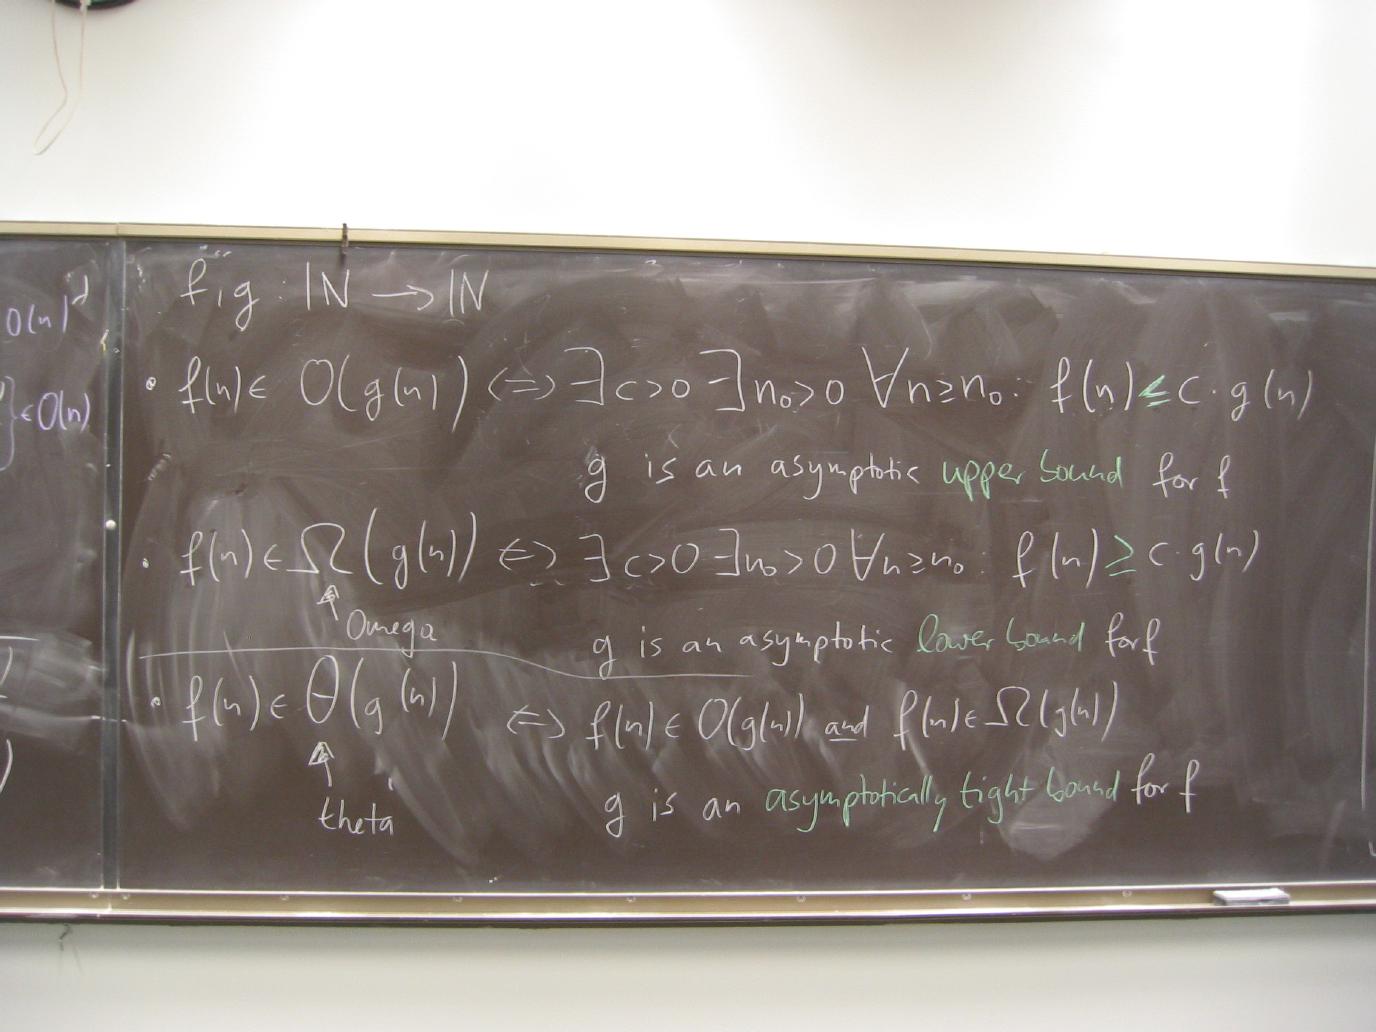 O(n)
} ∈ O(n)
f, g : ℕ → ℕ
• f(n) ∈ O(g(n)) <=> ∃ c>0 ∃ n₀>0 ∀ n≥n₀ : f(n) ≤ c · g(n)
g is an asymptotic upper bound for f
• f(n) ∈ Ω(g(n)) <=> ∃ c>0 ∃ n₀>0 ∀ n≥n₀ : f(n) ≥ c · g(n)
Omega
g is an asymptotic lower bound for f
• f(n) ∈ Θ(g(n)) <=> f(n) ∈ O(g(n)) and f(n) ∈ Ω(g(n))
theta
g is an asymptotically tight bound for f